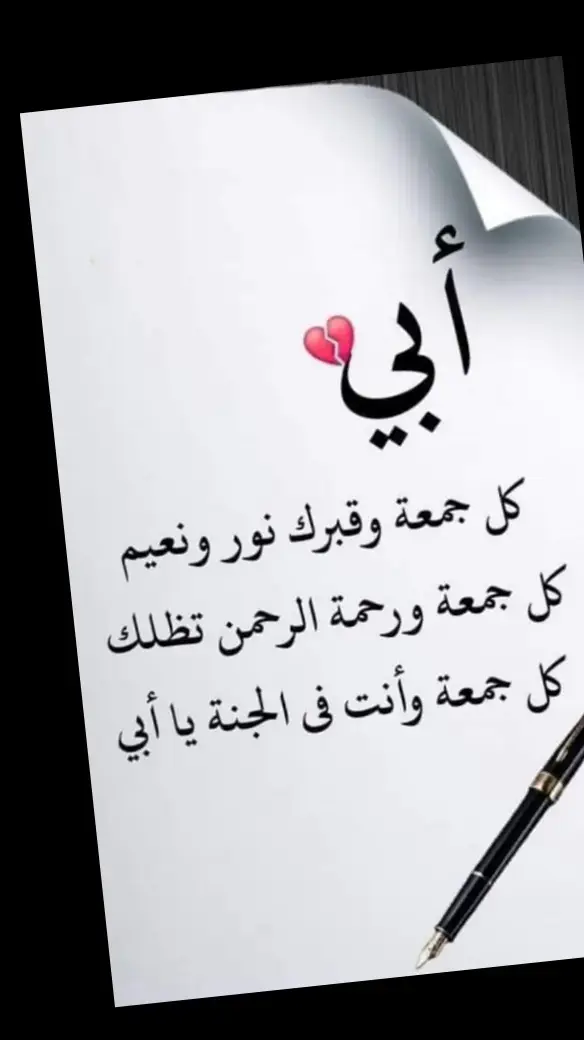 أبي 💔
كل جمعة وقبرك نور ونعيم
كل جمعة ورحمة الرحمن تظلك
كل جمعة وأنت فى الجنة يا أبي